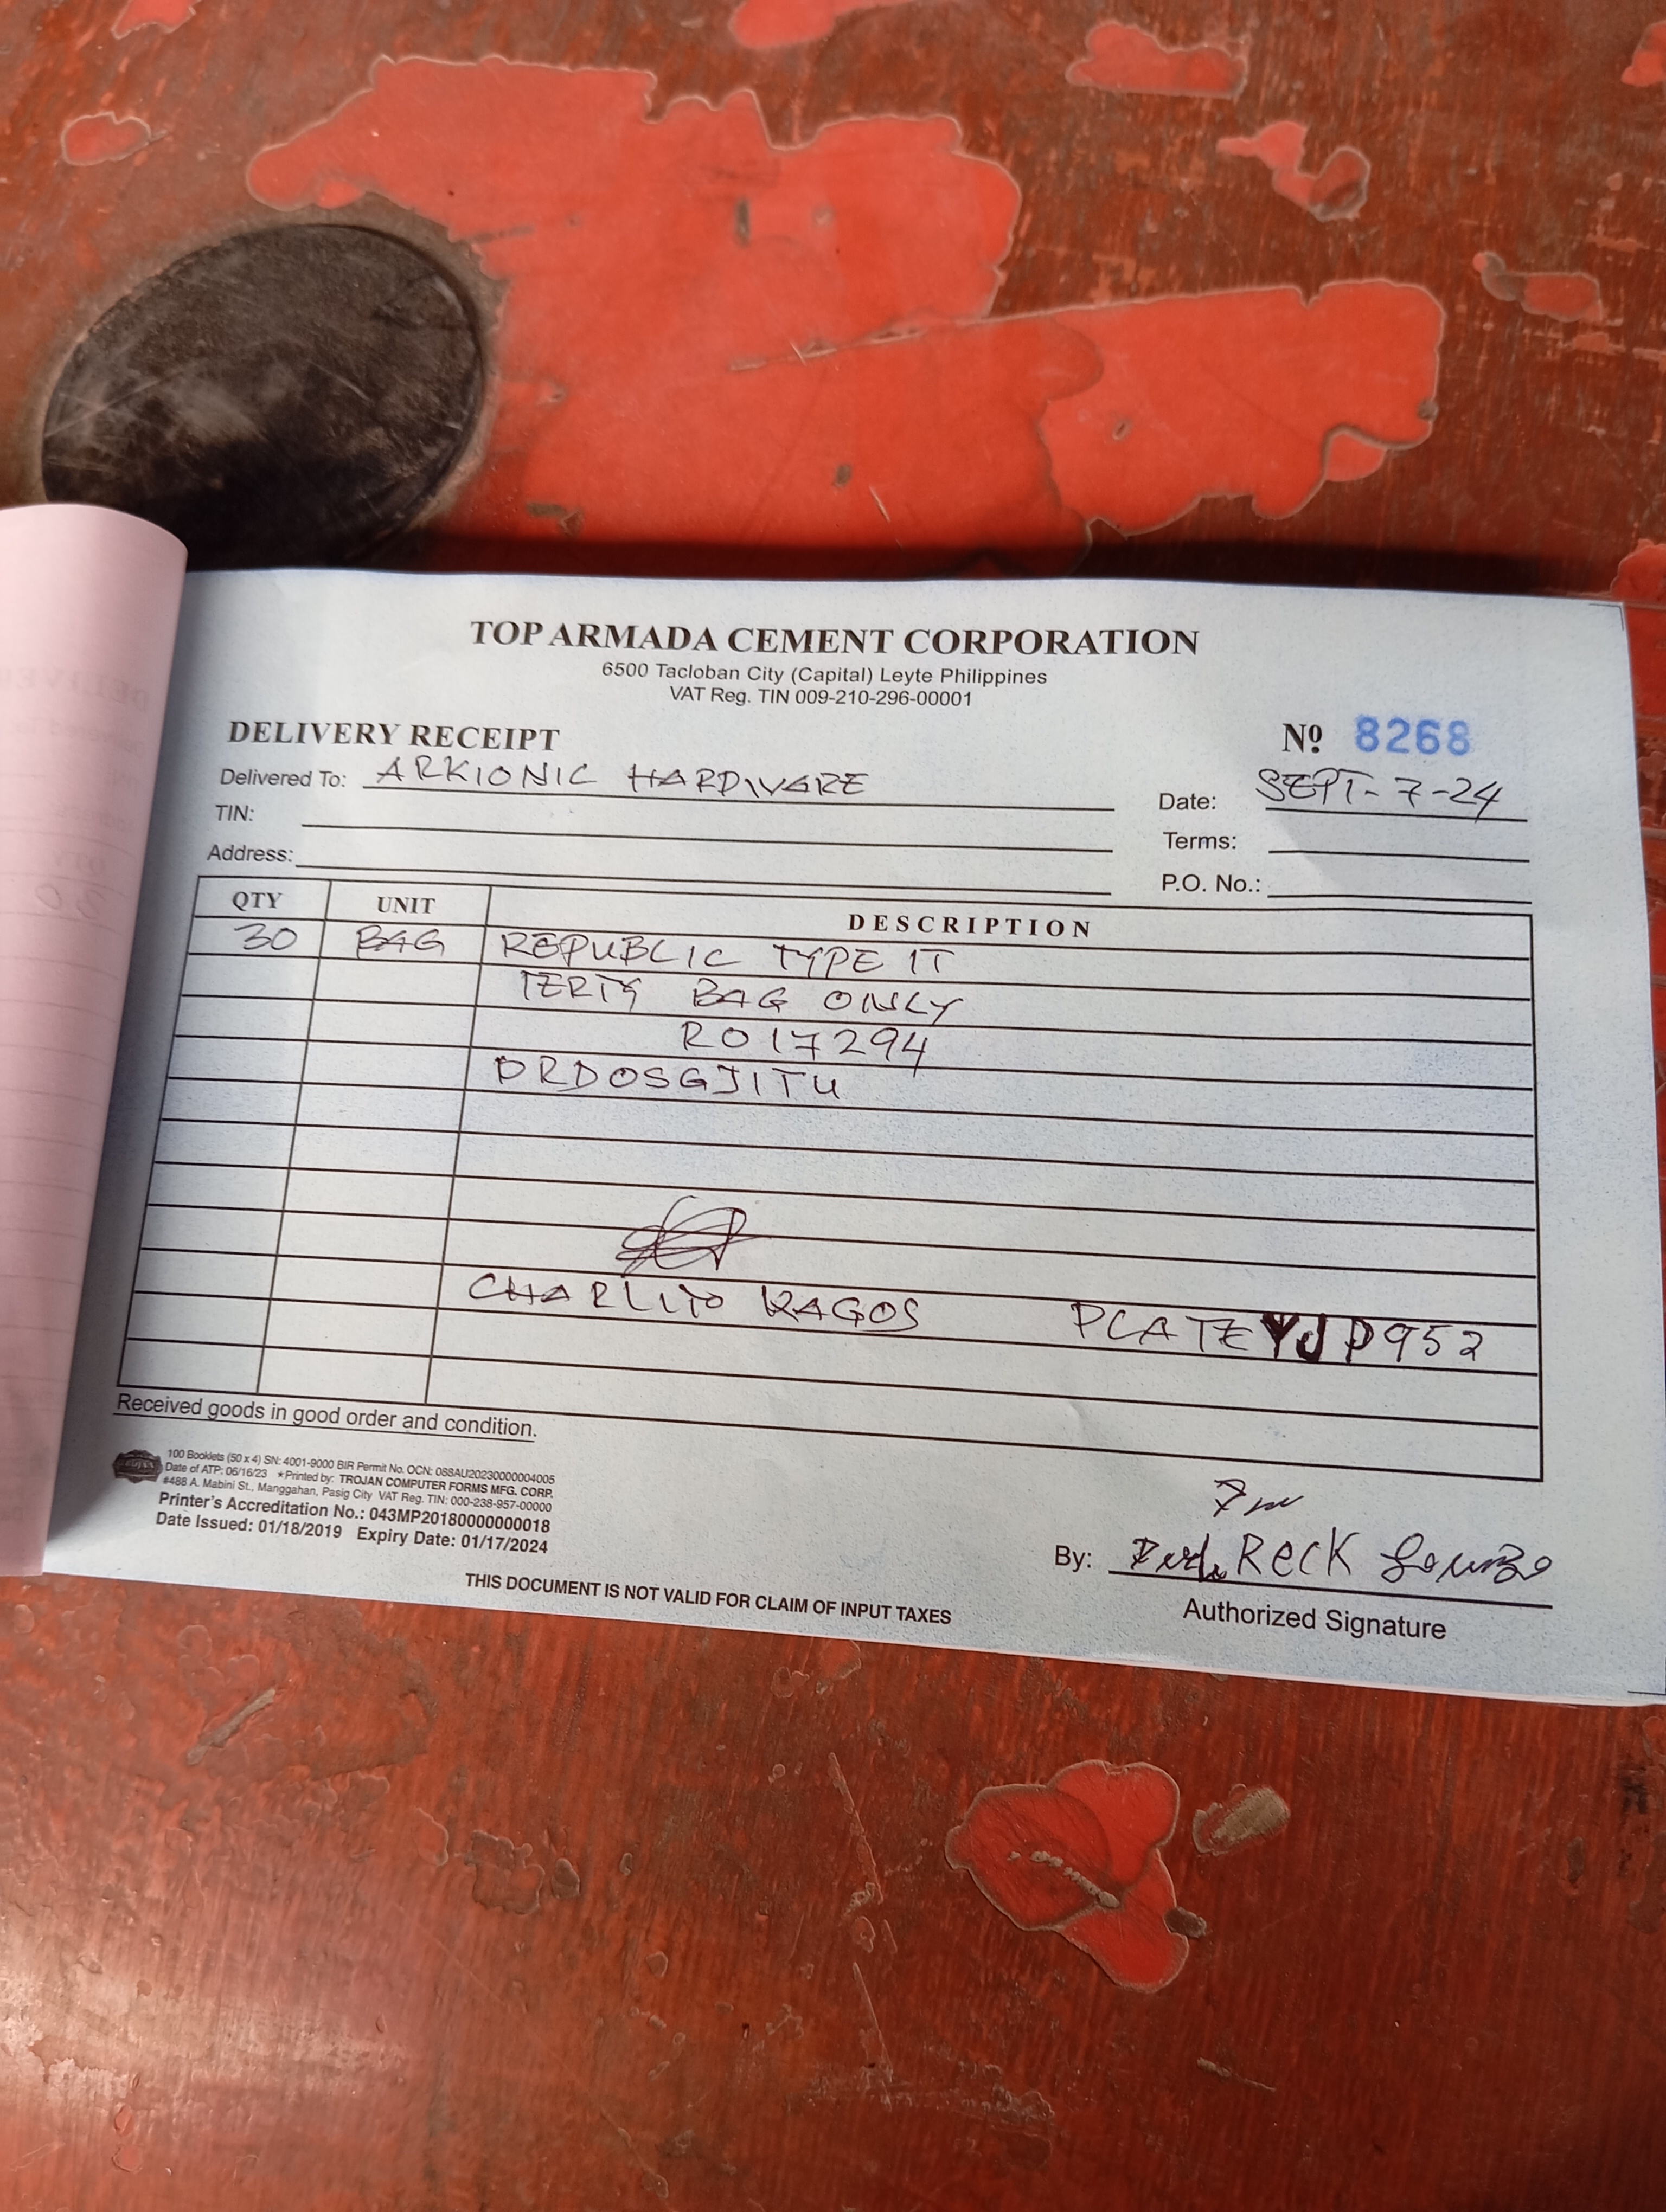 TOP ARMADA CEMENT CORPORATION
6500 Tacloban City (Capital) Leyte Philippines
VAT Reg. TIN 009-210-296-00001
DELIVERY RECEIPT
Nº 8268
Delivered To: ARKIONIC HARDWARE
Date: SEPT-7-24
TIN:
Terms:
Address:
P.O. No.:
QTY UNIT DESCRIPTION
30 BAG REPUBLIC TYPE 1T
TERTY BAG ONLY
RO17294
DRDOSGJITU
CHARLITO RAGOS PLATE YJP952
Received goods in good order and condition.
100 Booklets (50 x 4) SN: 4001-9000 BIR Permit No. OCN: 088AU20230000004005
Date of ATP: 06/16/23 ★Printed by: TROJAN COMPUTER FORMS MFG. CORP.
#488 A. Mabini St., Manggahan, Pasig City VAT Reg. TIN: 000-238-957-00000
Printer's Accreditation No.: 043MP20180000000018
Date Issued: 01/18/2019 Expiry Date: 01/17/2024
By: Reck
Authorized Signature
THIS DOCUMENT IS NOT VALID FOR CLAIM OF INPUT TAXES